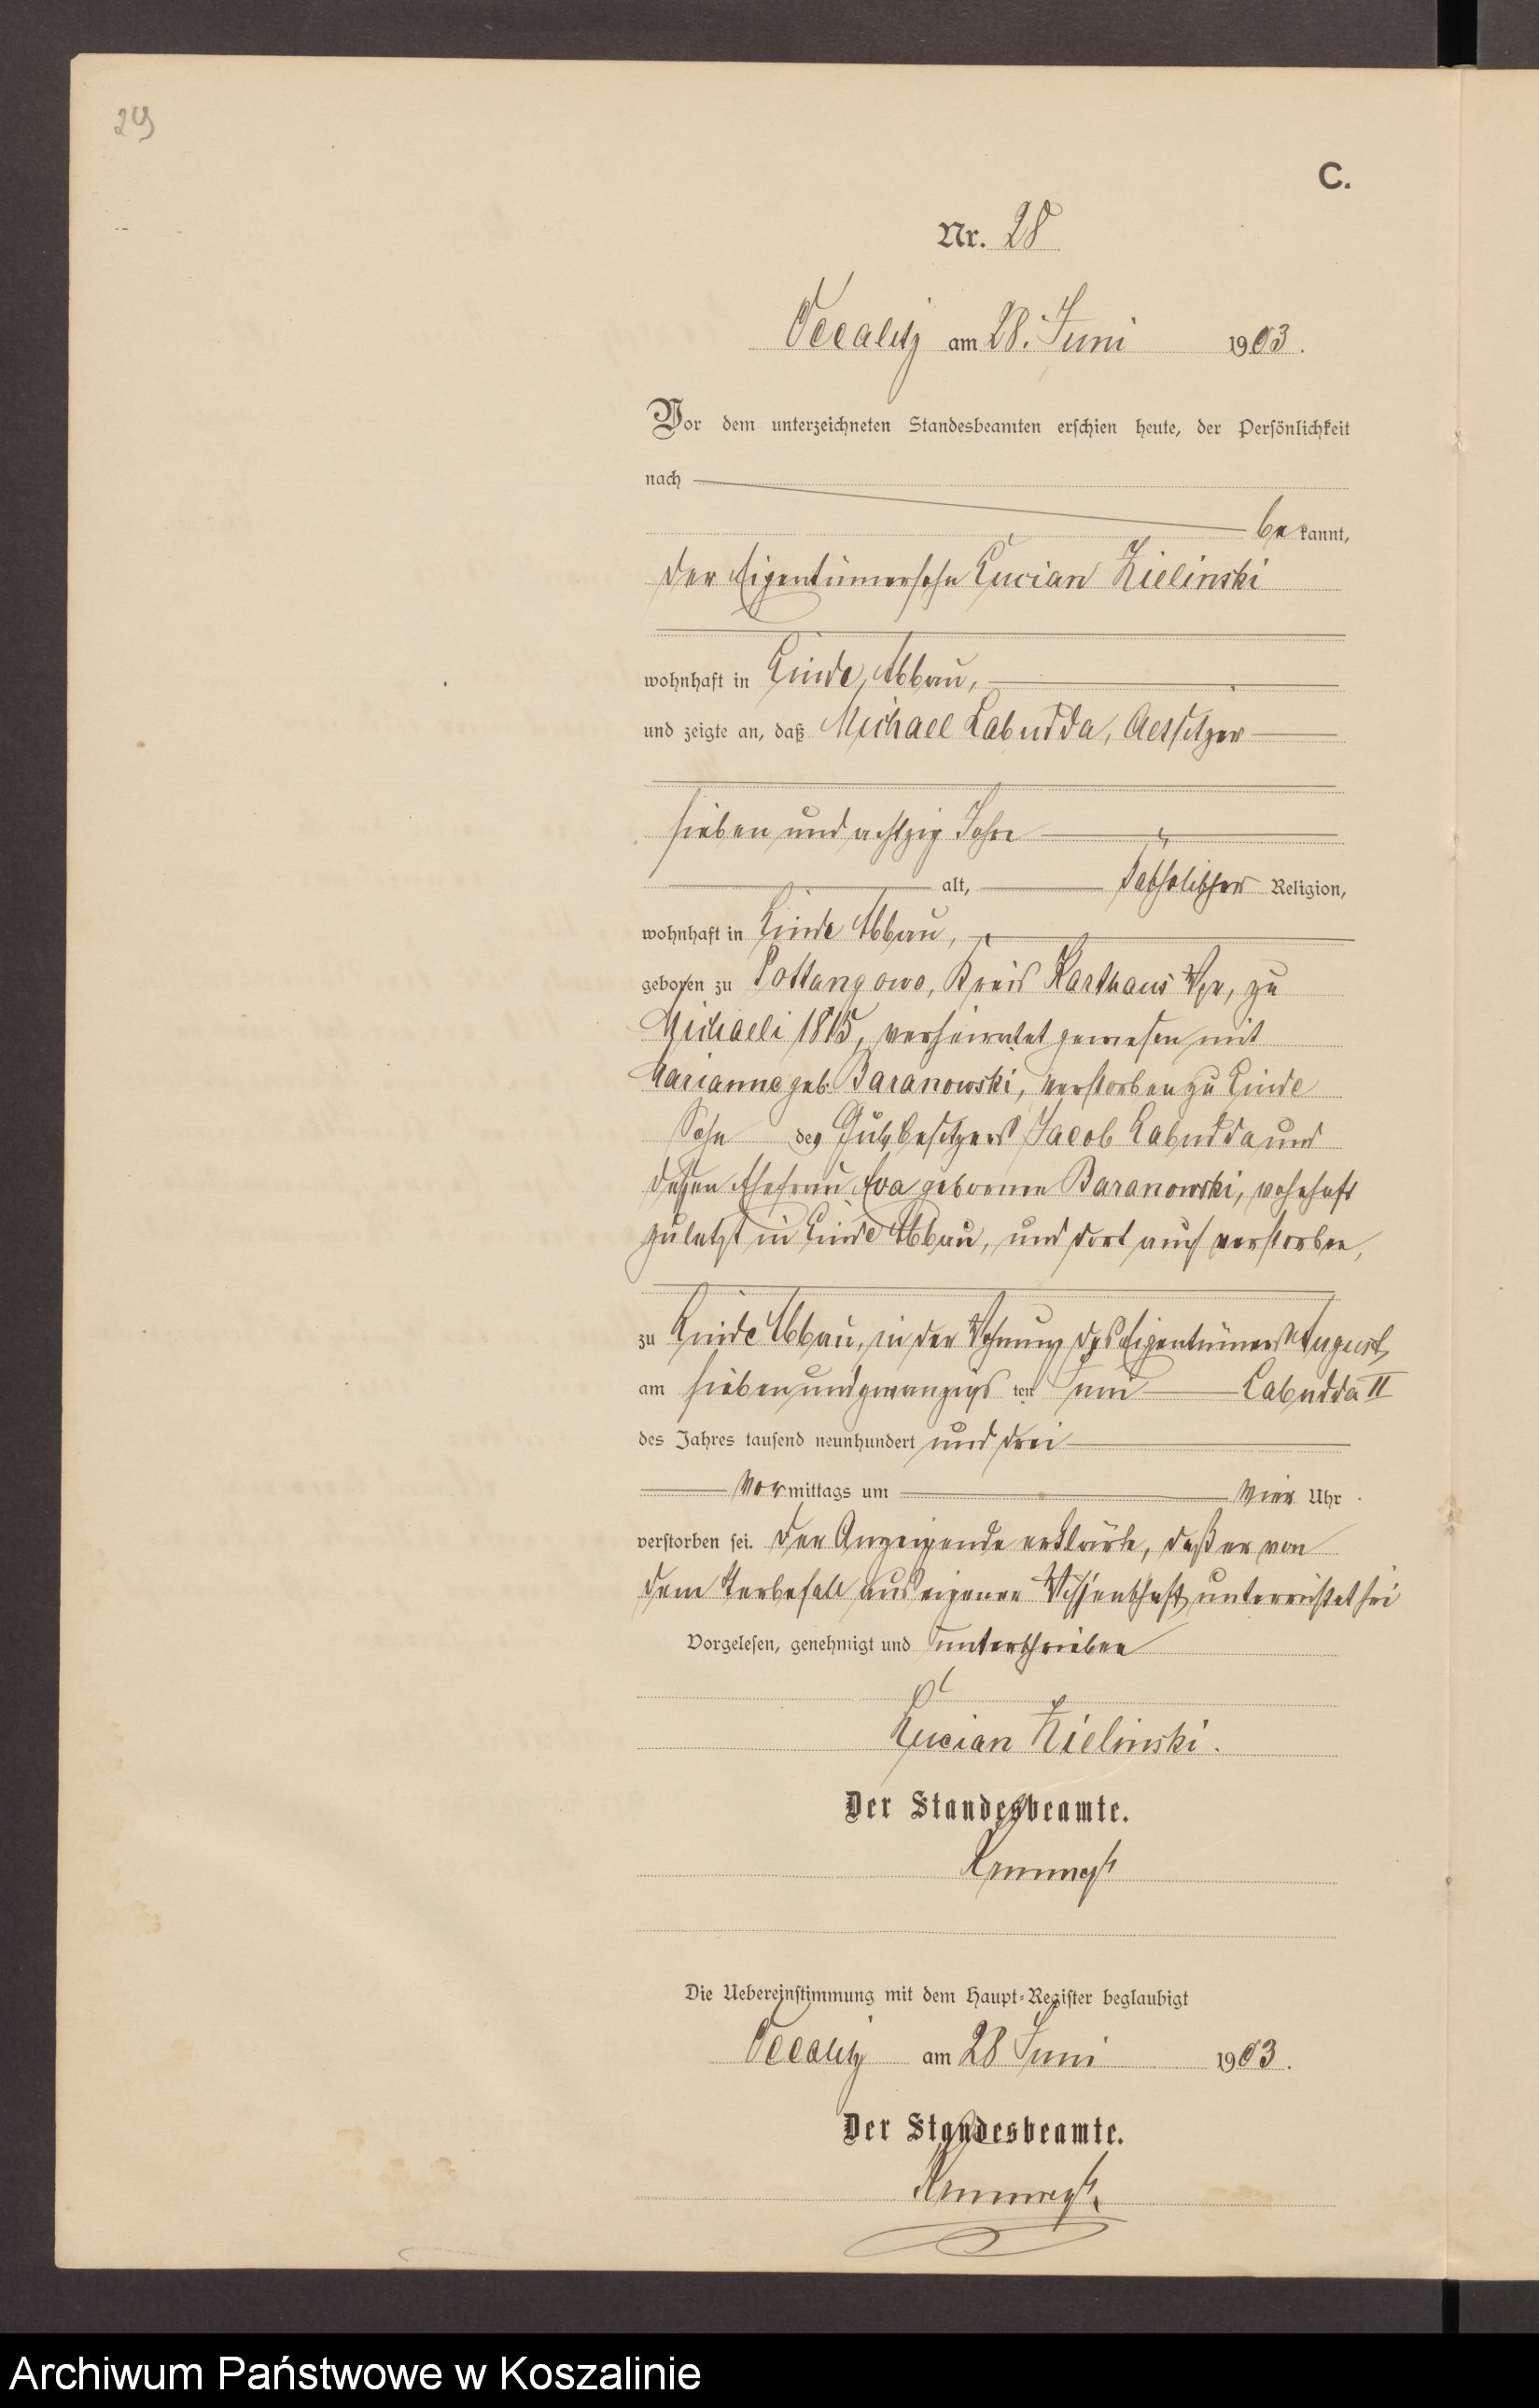 29
C.
Nr. 28
Occalitz am 28. Juni 1903.
Vor dem unterzeichneten Standesbeamten erschien heute, der Persönlichkeit
nach
bekannt,
der Eigentümersohn Lucian Zielinski
wohnhaft in Linde, Abbau,
und zeigte an, daß Michael Labudda, Altsitzer
sieben und achtzig Jahre
alt, katholischer Religion,
wohnhaft in Linde Abbau,
geboren zu Pottangowo, Kreis Karthaus Wpr, zu
Michaeli 1815, verheiratet gewesen mit
Marianne geb. Baranowski, verstorben zu Linde
Sohn des Gutsbesitzers Jacob Labudda und
dessen Ehefrau Eva geborene Baranowski, wohnhaft
zuletzt in Linde Abbau, und dort auch verstorben,
zu Linde Abbau, in der Wohnung des Eigentümers August
am sieben und zwanzigsten Juni Labudda II
des Jahres tausend neunhundert und drei
Vormittags um vier Uhr
verstorben sei. Der Anzeigende erklärte, daß er von
dem Sterbefall aus eigener Wissenschaft unterrichtet sei
Vorgelesen, genehmigt und unterschrieben
Lucian Zielinski.
Der Standesbeamte.
Die Uebereinstimmung mit dem Haupt-Register beglaubigt
Occalitz am 28 Juni 1903.
Der Standesbeamte.
Archiwum Państwowe w Koszalinie